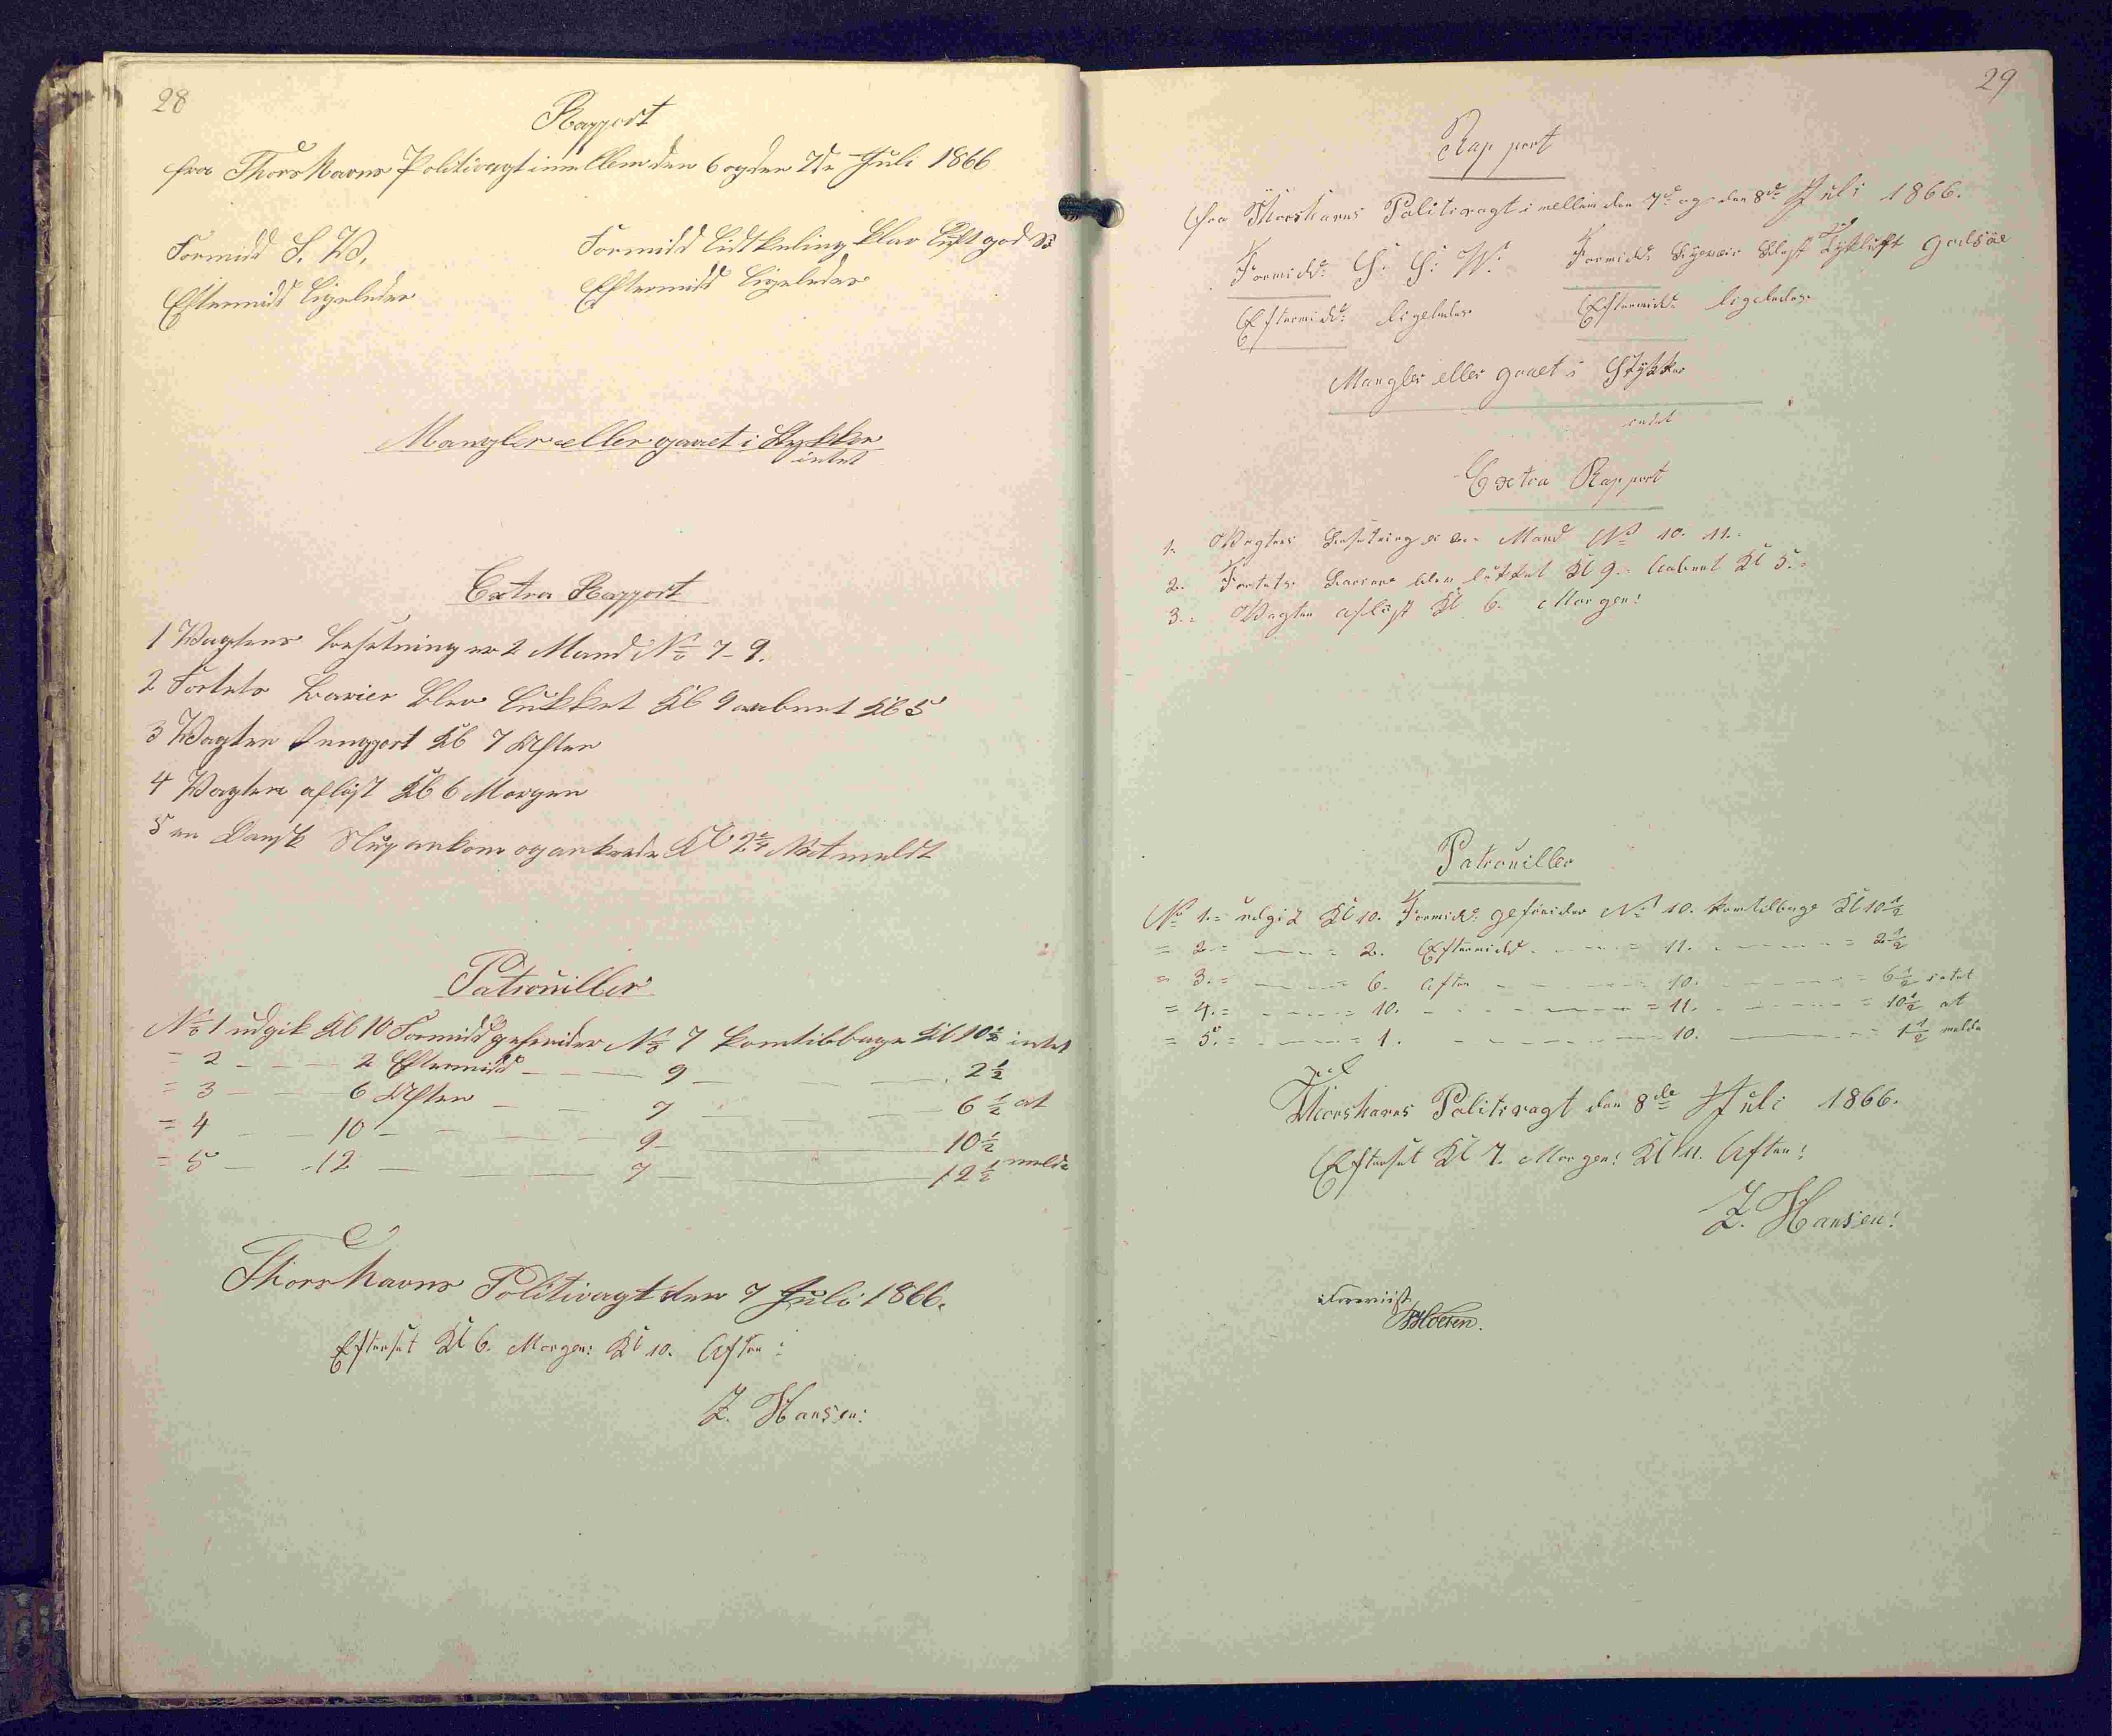 28
Rapport
fra Thorshavns Politivagt imellem den 6 og den 7de Juli 1866
Formidd S. W. Formidd Lidt kuling klar Luft god Sö
Eftermidd ligeledes Eftermidd ligeledes
Mangler eller gaaet i Stykker
intet
Extra Rapport
1 Wagtens besetning er 2 Mand No 7-9.
2 Fortets Barier blev lukket Kl 9 aabnet Kl 5
3 Wagten Kl 7 Aften
4 Wagten aflöst Kl 6 Morgen
5 en Dansk Slup ankom og ankrede Kl 2 meldt
Patrouiller
No 1 udgik Kl 10 Formidd gefreider No 7 kom tilbage Kl 10½ intet
= 2 - - - 2 Eftermidd - - - 9 - - - 2½
= 3 - - - 6 Aften - - - 7 - - - 6½ at
= 4 - - - 10 - - - 9 - - - 10½
= 5 - - - 12 - - - 7 - - - 12½ melde
Thorshavns Politivagt den 7 Juli 1866.
Efterset Kl 6. Morgen: Kl 10. Aften:
Z. Hansen:
29
Rapport
fra Thorshavns Politivagt imellem den 7de og den 8de Juli 1866.
Formidd: S: S: W: Formidd: Tykluft god söe
Eftermidd: ligeledes Eftermidd: ligeledes
Mangler eller gaaet i Stykker
intet
Extra Rapport
1. Wagtens Besetning er 2. Mand No 10. 11.
2. Fortets Bariere blev lukket Kl 9. aabnet Kl 5.
3. Wagten aflöst Kl 6. Morgen:
Patrouiller
No 1. udgik Kl 10. Formidd: gefreider No 10. kom tilbage Kl 10½
= 2. = - - - 2. Eftermidd - - - 11. - - - 2½
= 3. = - - - 6. Aften - - - 10. - - - 6½ intet
= 4. = - - - 10. - - - 11. - - - 10½ at
= 5. = - - - 1. - - - 10. - - - 1½ melde
Thorshavns Politivagt den 8de Juli 1866.
Efterset Kl 7. Morgen: Kl 11. Aften:
Z. Hansen:
Foreviist